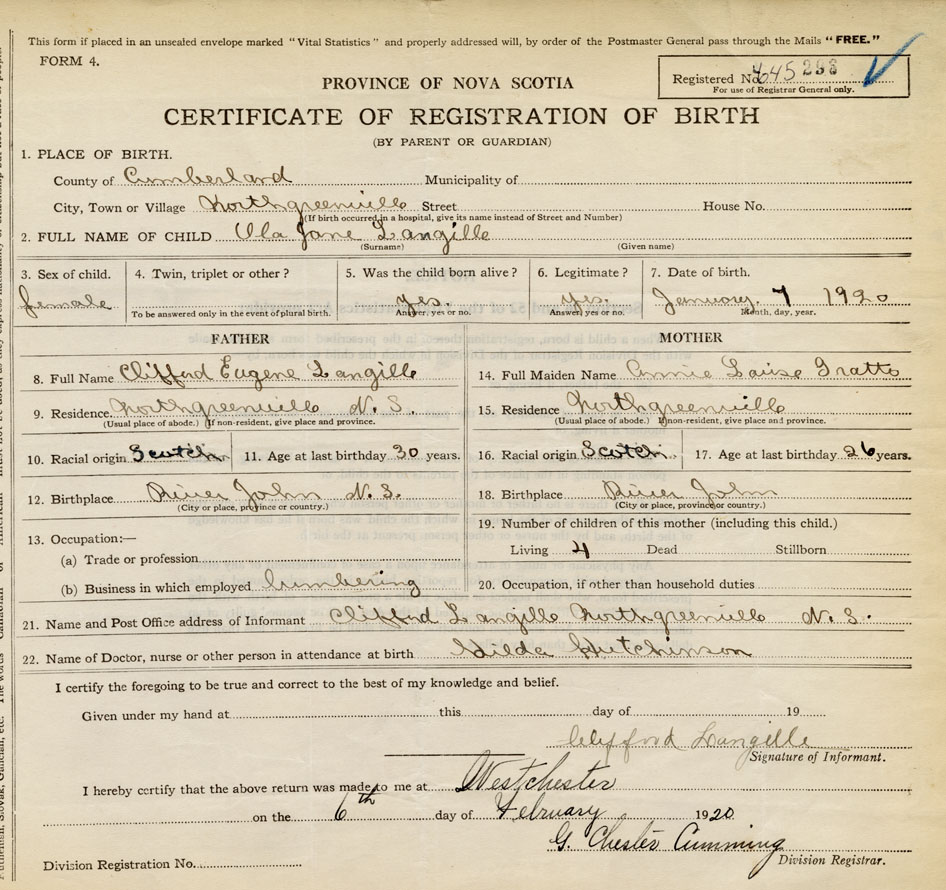 This form if placed in an unsealed envelope marked "Vital Statistics" and properly addressed will, by order of the Postmaster General pass through the Mails "FREE."
FORM 4.
Registered No. 645 298
For use of Registrar General only.
PROVINCE OF NOVA SCOTIA
CERTIFICATE OF REGISTRATION OF BIRTH
(BY PARENT OR GUARDIAN)
1. PLACE OF BIRTH.
County of Cumberland Municipality of
City, Town or Village Northgreenville Street House No.
(If birth occurred in a hospital, give its name instead of Street and Number)
2. FULL NAME OF CHILD Ula Jane Langille
(Surname) (Given name)
3. Sex of child. 4. Twin, triplet or other? 5. Was the child born alive? 6. Legitimate? 7. Date of birth.
female yes. yes. January 7 1920
To be answered only in the event of plural birth. Answer, yes or no. Answer, yes or no. Month, day, year.
FATHER MOTHER
8. Full Name Clifford Eugene Langille 14. Full Maiden Name Annie Louise Gratto
9. Residence Northgreenville N. S. 15. Residence Northgreenville
(Usual place of abode.) (If non-resident, give place and province. (Usual place of abode.) If non-resident, give place and province.
10. Racial origin Scotch 11. Age at last birthday 30 years. 16. Racial origin Scotch 17. Age at last birthday 26 years.
12. Birthplace River John N. S. 18. Birthplace River John
(City or place, province or country.) (City or place, province or country.)
13. Occupation:— 19. Number of children of this mother (including this child.)
(a) Trade or profession Living 4 Dead Stillborn
(b) Business in which employed lumbering 20. Occupation, if other than household duties
21. Name and Post Office address of Informant Clifford Langille Northgreenville N. S.
22. Name of Doctor, nurse or other person in attendance at birth Hilda Hutchinson
I certify the foregoing to be true and correct to the best of my knowledge and belief.
Given under my hand at this day of 19
Clyfford Langille
Signature of Informant.
I hereby certify that the above return was made to me at Westchester
on the 6th day of February 1920
G. Chester Cumming
Division Registration No. Division Registrar.